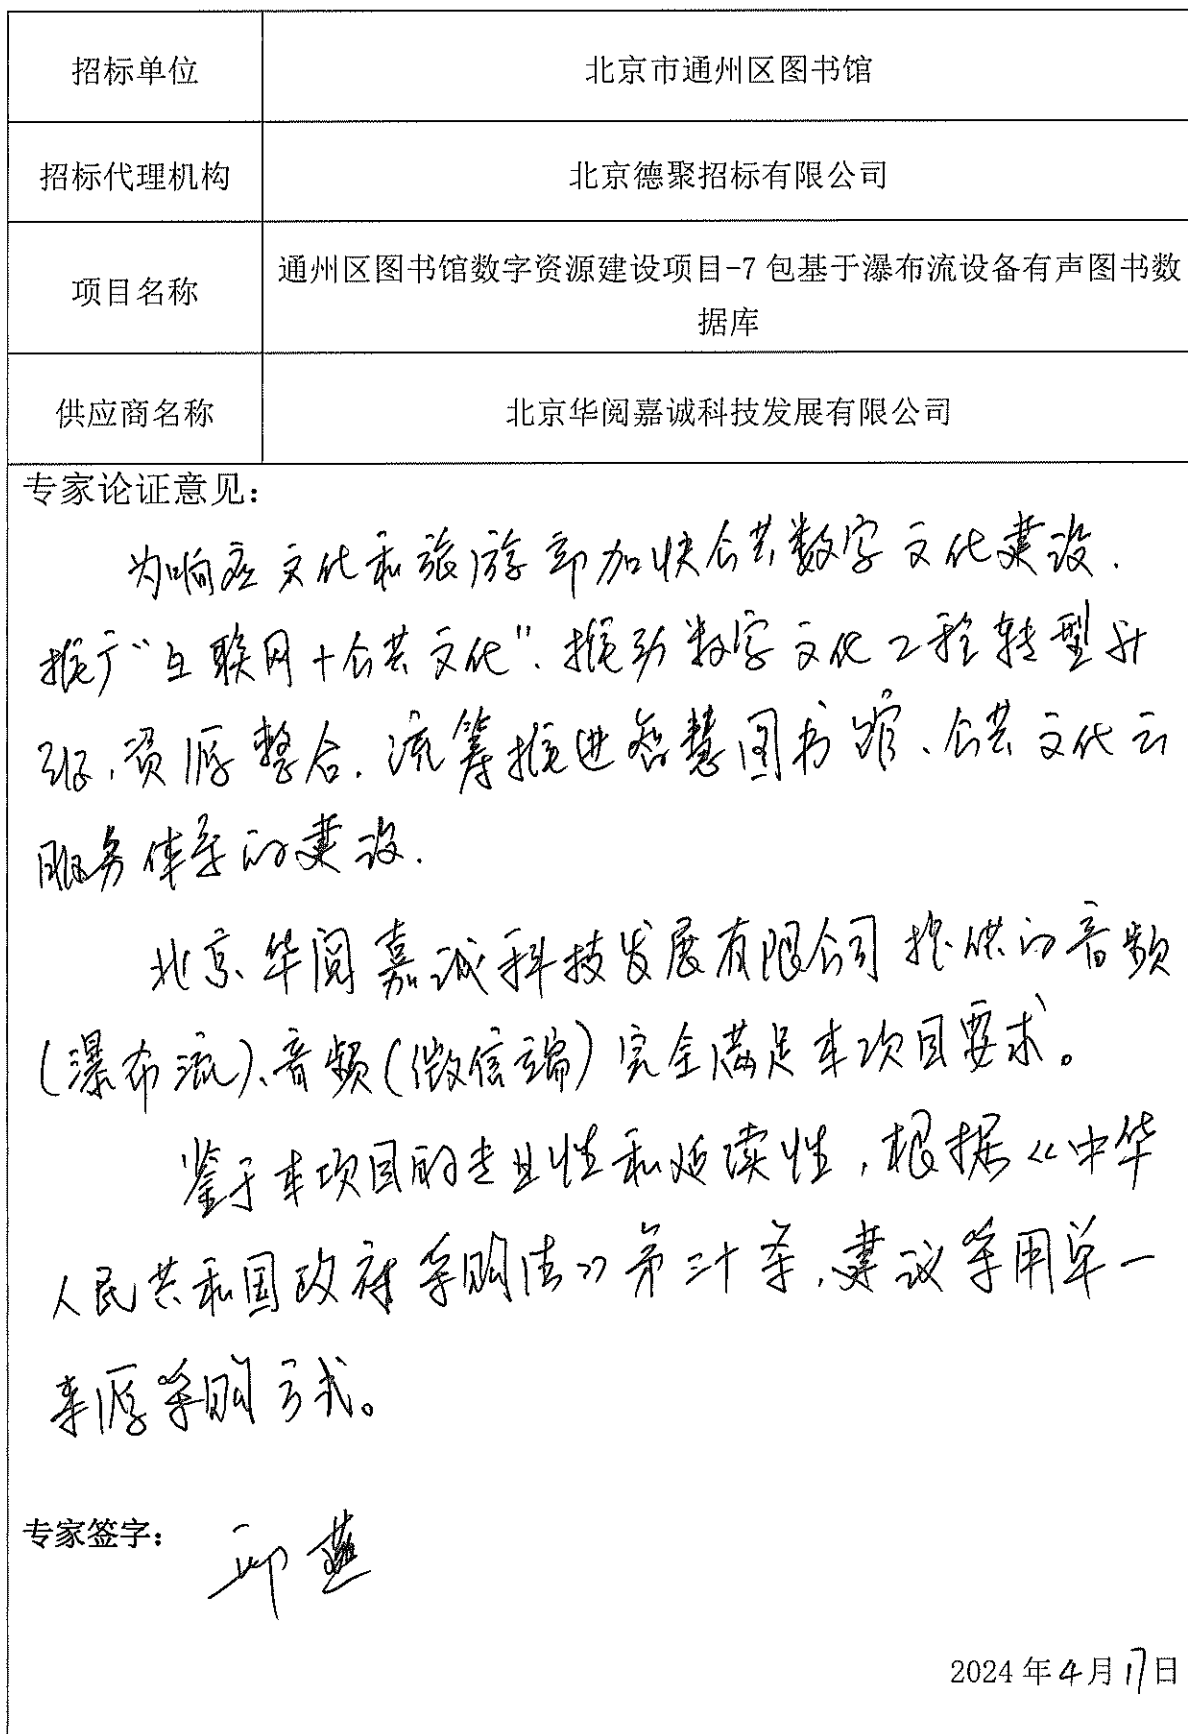 招标单位
北京市通州区图书馆
招标代理机构
北京德聚招标有限公司
项目名称
通州区图书馆数字资源建设项目-7包基于瀑布流设备有声图书数
据库
供应商名称
北京华阅嘉诚科技发展有限公司
专家论证意见：
为响应文化和旅游部加快公共数字文化建设.
推广“互联网+公共文化”.推动数字文化工程转型升
级,资源整合.统筹推进智慧图书馆、公共文化云
服务体系的建设.
北京华阅嘉诚科技发展有限公司提供的音频
(瀑布流)、音频(微信端)完全满足本项目要求。
鉴于本项目的专业性和延续性,根据《中华
人民共和国政府采购法》第三十条,建议采用单一
来源采购方式。
专家签字：
邱燕
2024年4月17日